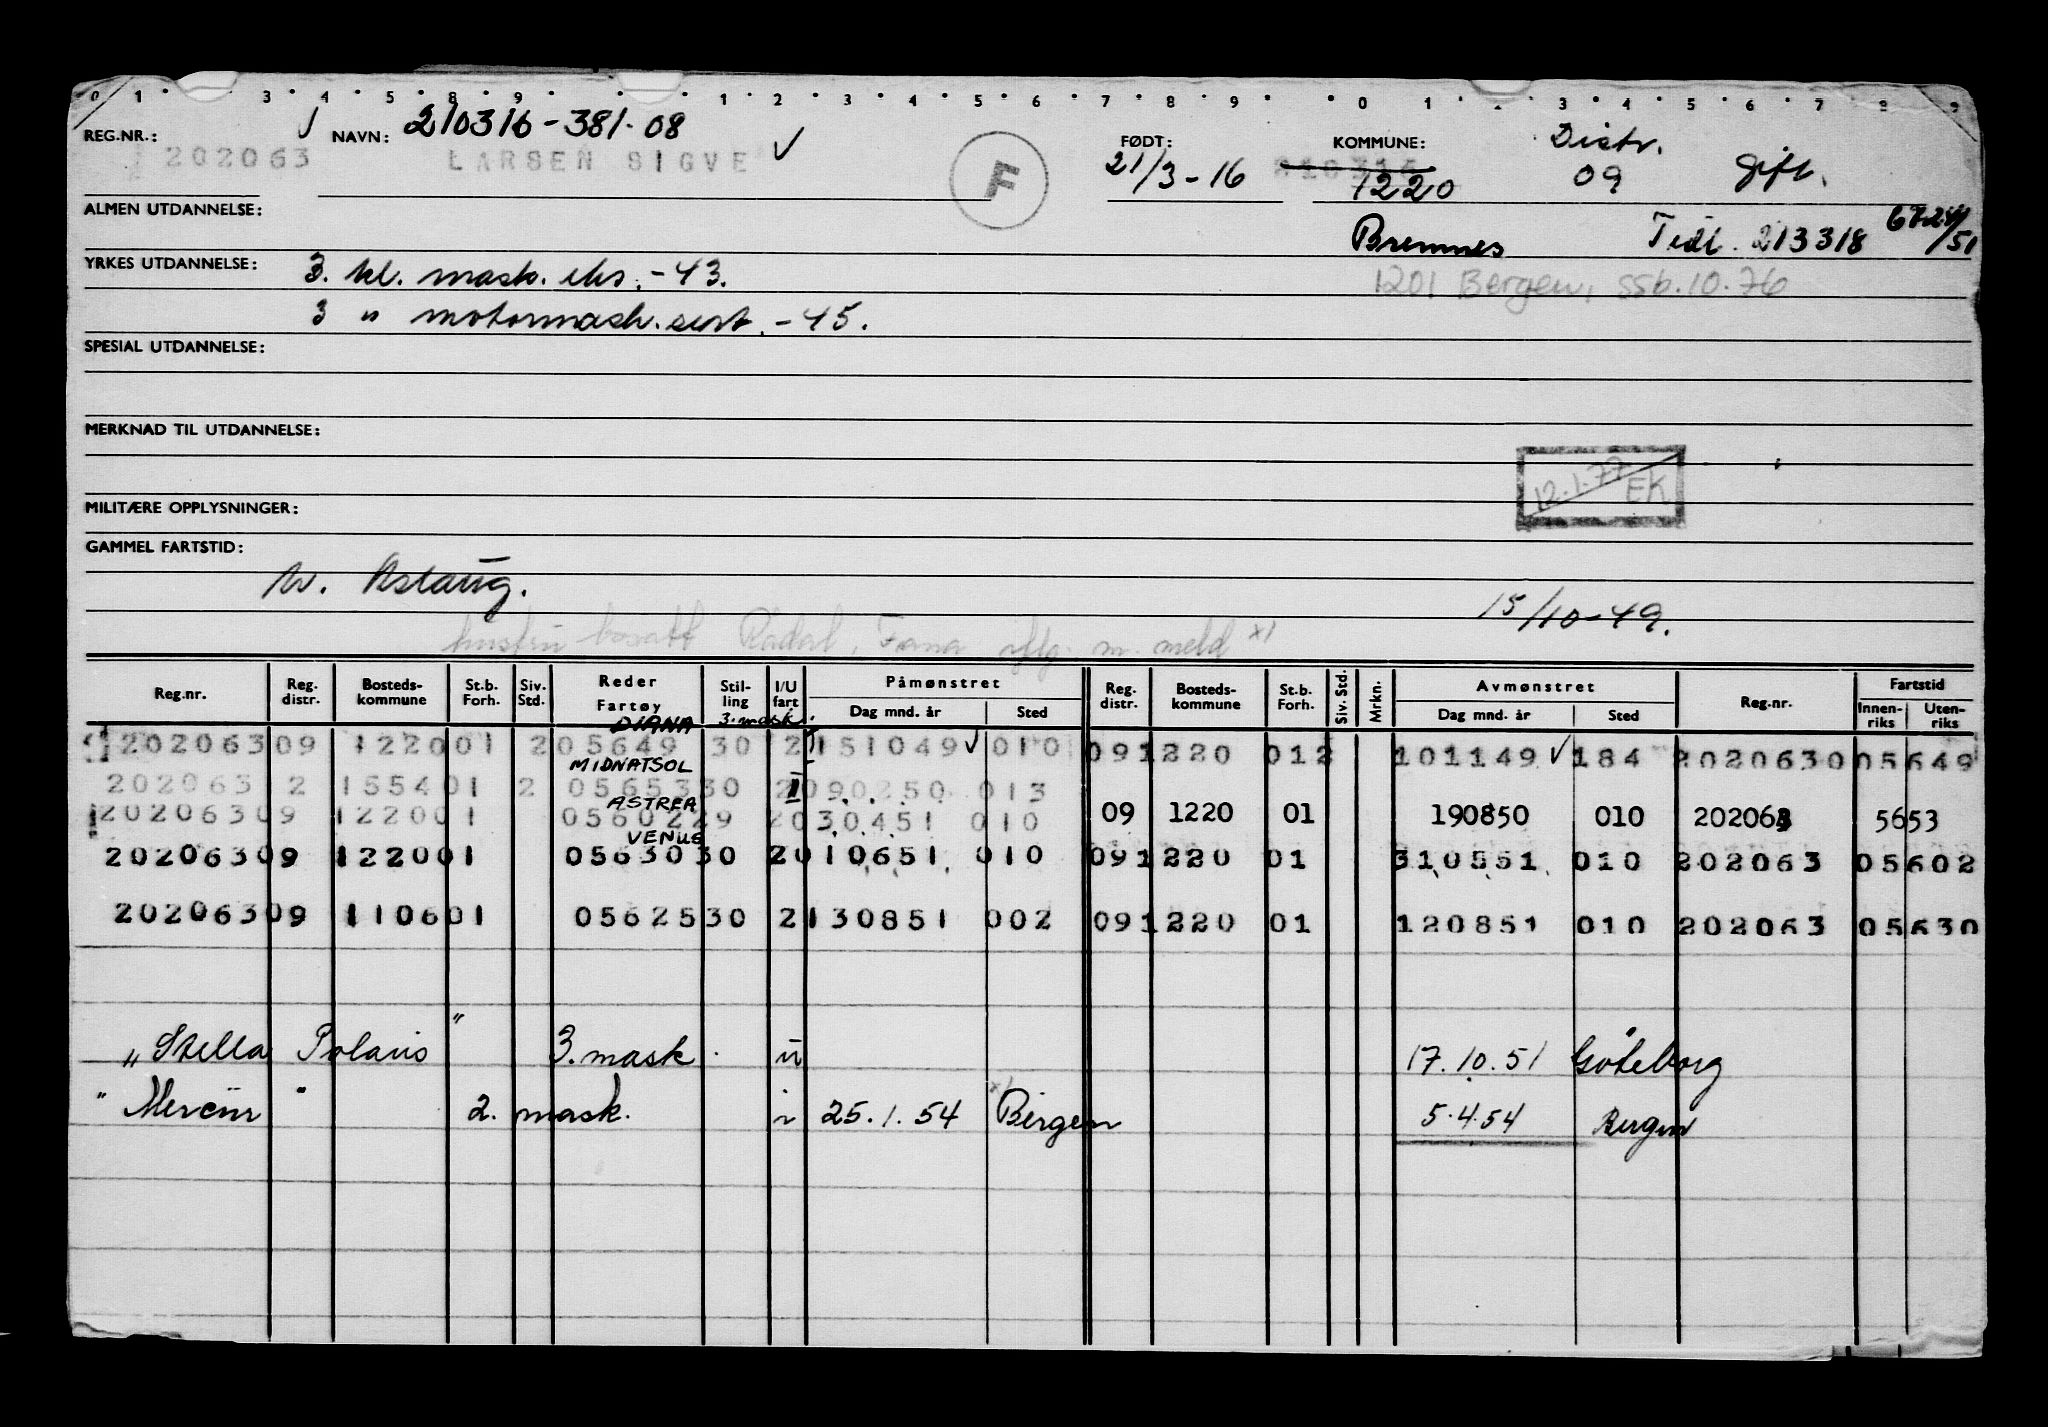 0 1 3 4 5 8 9 1 2 3 4 5 6 7 8 9 0 1 2 3 4 5 6 7 8 9
REG.NR.: NAVN: 210316-381.08 FØDT: KOMMUNE: Distr.
202063 LARSEN SIGVE F 21/3-16 1220 09 gift.
ALMEN UTDANNELSE: Bremnes Tidl. 213318
YRKES UTDANNELSE: 3. kl. mask. eks. -43. 1201 Bergen, ssb. 10.76
3 " motormask. sert. -45.
SPESIAL UTDANNELSE:
MERKNAD TIL UTDANNELSE:
12.1.77 EK
MILITÆRE OPPLYSNINGER:
GAMMEL FARTSTID:
m. Aslaug.
15/10-49.
hustru bosatt Radal, Fana iflg. m. meld x)
Reg.nr. Reg. distr. Bosteds-kommune St.b. Forh. Siv. Std. Reder Fartøy Stil-ling I/U fart Påmønstret Dag mnd. år Sted Reg. distr. Bosteds-kommune St.b. Forh. Siv. Std. Mrkn. Avmønstret Dag mnd. år Sted Reg.nr. Fartstid Innen-riks Uten-riks
DIANA 3. mask.
202063 09 1220 01 2 05649 30 2 151049 010 09 1220 01 2 101149 184 202063 0 05649
MIDNATSOL
202063 2 1554 01 2 05653 30 2 090250 013
ASTREA I
202063 09 1220 01 05602 29 2 030451 010 09 1220 01 190850 010 202063 5653
VENUS
202063 09 1220 01 05630 30 2 010651 010 09 1220 01 310551 010 202063 05602
202063 09 1106 01 05625 30 2 130851 002 09 1220 01 120851 010 202063 05630
"Stella Polaris" 3. mask. u 17.10.51 Göteborg
"Mercur" 2. mask. i 25.1.54 x) Bergen 5.4.54 Bergen